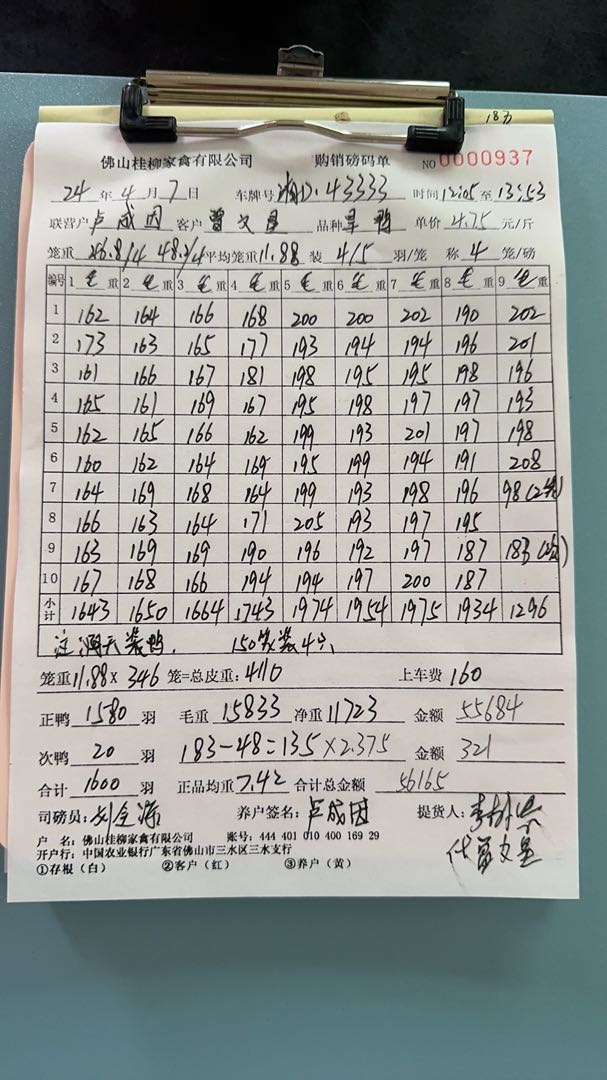 183
佛山桂柳家禽有限公司 购销磅码单 NO 0000937
24 年 4 月 7 日 车牌号 D·43333 时间 12:05 至 13:53
联营户 卢成因 客户 曾文星 品种 旱鸭 单价 4.75 元/斤
笼重 46.8/4 48.2/4 平均笼重 11.88 装 4/5 羽/笼 称 4 笼/磅
编号 1 毛重 2 毛重 3 毛重 4 毛重 5 毛重 6 毛重 7 毛重 8 毛重 9 毛重
1 162 164 166 168 200 200 202 190 202
2 173 163 165 177 193 194 194 196 201
3 161 166 167 181 198 195 195 198 196
4 165 161 169 167 195 198 197 197 193
5 162 165 166 162 199 193 201 197 198
6 160 162 164 169 195 199 194 191 208
7 164 169 168 164 199 193 198 196 98(2笼)
8 166 163 164 171 205 193 197 195
9 163 169 169 190 196 192 197 187 183(次)
10 167 168 166 194 194 197 200 187
小计 1643 1650 1664 1743 1974 1954 1975 1934 1296
注 雨天装鸭. 150笼装4只
笼重 11.88 × 346 笼=总皮重: 4110 上车费 160
正鸭 1580 羽 毛重 15833 净重 11723 金额 55684
次鸭 20 羽 183-48=135×2.375 金额 321
合计 1600 羽 正品均重 7.42 合计总金额 56165
司磅员: 养户签名: 卢成因 提货人:
代曾文星
户 名: 佛山桂柳家禽有限公司 账号: 444 401 010 400 169 29
开户行: 中国农业银行广东省佛山市三水区三水支行
①存根（白） ②客户（红） ③养户（黄）